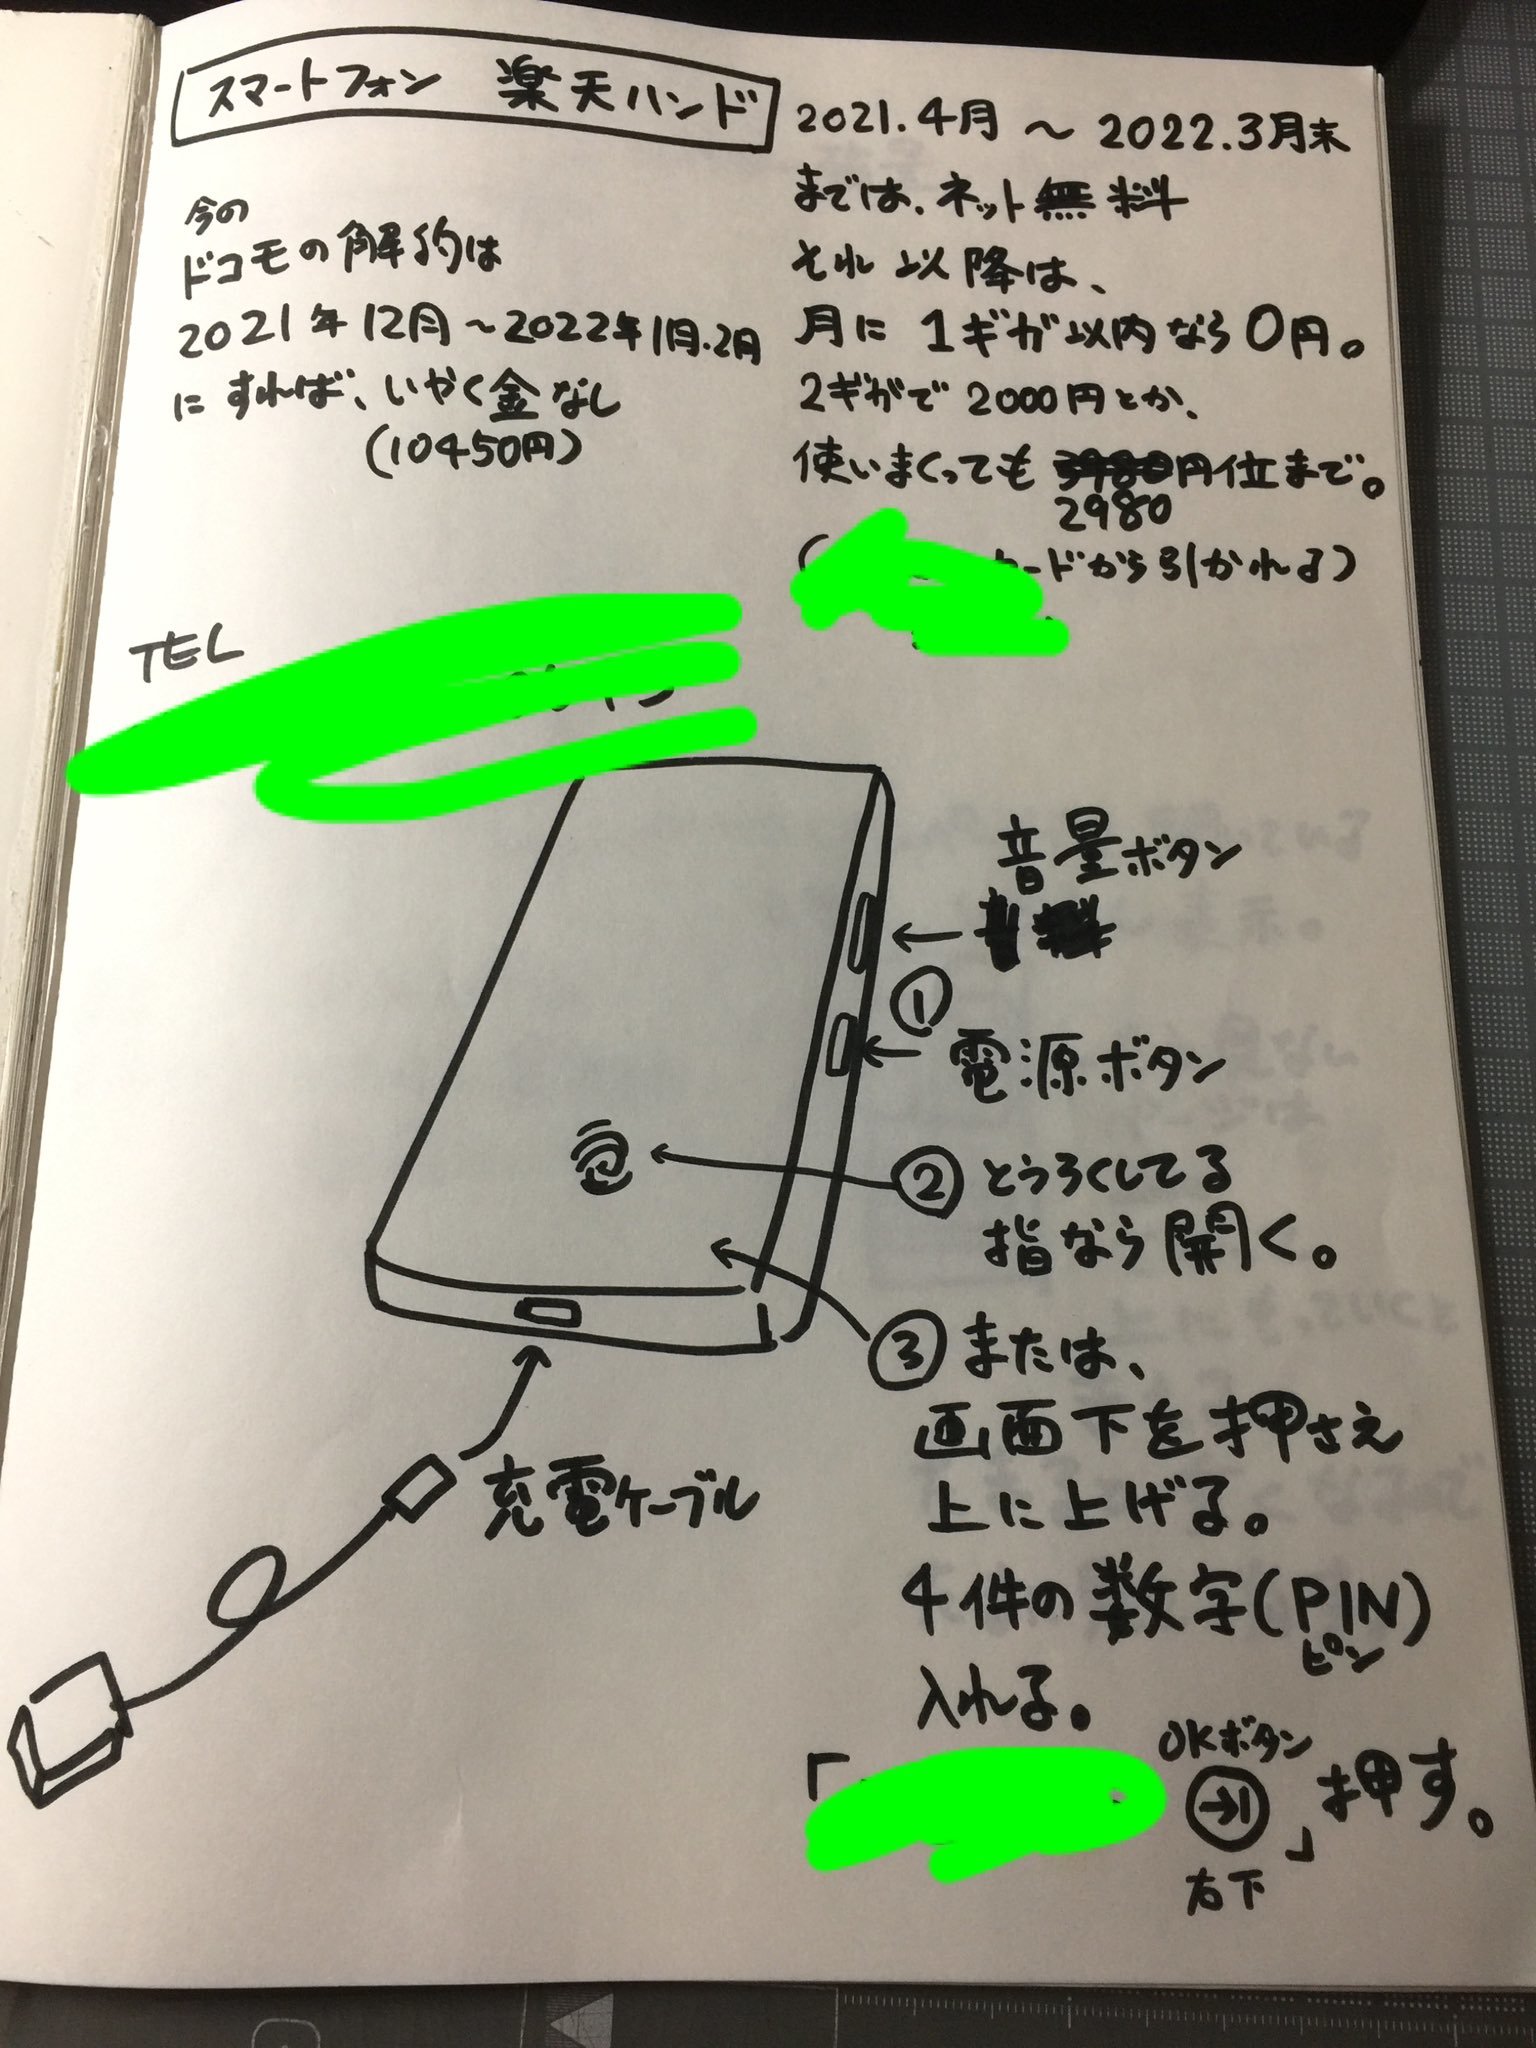 スマートフォン 楽天ハンド
今の
ドコモの解約は
2021年12月～2022年1月.2月
にすれば、いやく金なし
(10450円)
2021.4月 ～ 2022.3月末
までは、ネット無料
それ以降は、
月に1ギガ以内なら0円。
2ギガで2000円とか、
使いまくっても3980円位まで。
2980
カードから引かれる)
TEL
音量ボタン
①
電源ボタン
②とうろくしてる
指なら開く。
③または、
画面下を押さえ
上に上げる。
4件の数字(PIN)
ピン
入れる。
OKボタン
「 →| 」押す。
右下
充電ケーブル